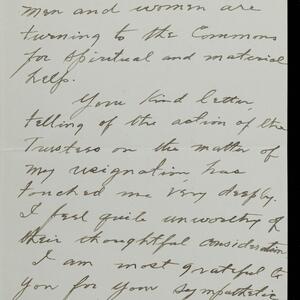 men and women are
turning to the Commons
for spiritual and material
help.
Your kind letter,
telling of the action of the
Trustees on the matter of
my resignation, has
touched me very deeply.
I feel quite unworthy of
their thoughtful consideration
I am most grateful to
you for your sympathetic